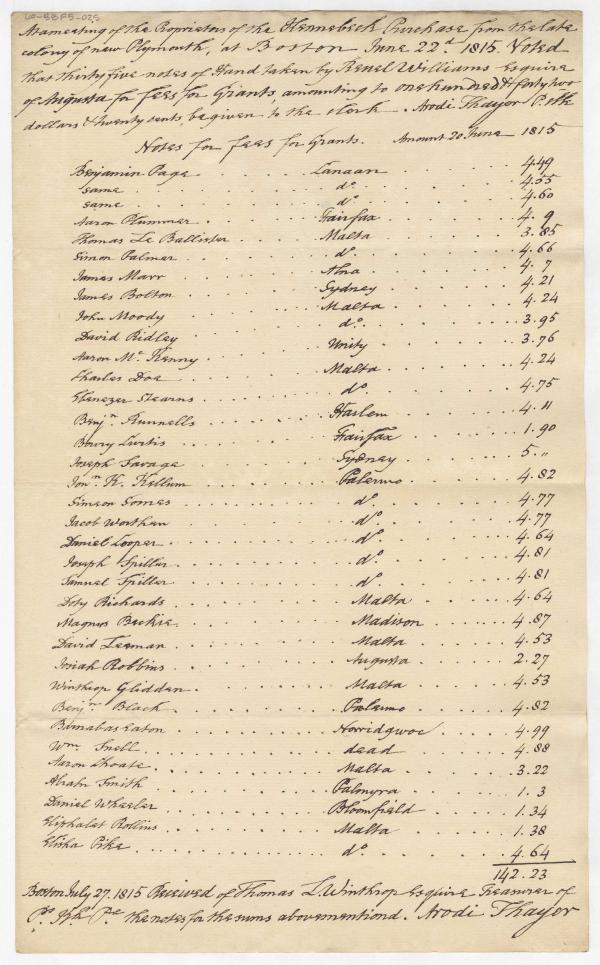 At a meeting of the Proprietors of the Kennebeck Purchase from the late
colony of new Plymouth, at Boston June 22d. 1815. Voted
that thirty five notes of Hand taken by Reuel Williams Esquire
of Augusta for fees for Grants, amounting to one hundred & forty two
dollars & twenty cents be given to the clerk. Arodi Thayer P. Clk
Notes for fees for Grants. Amount 20. June 1815
Benjamin Page Canaan 4.49
same do. 4.55
same do. 4.60
Aaron Plummer Fairfax 4.9
Thomas Le Ballister Malta 3.85
Simon Palmer do. 4.66
James Marr Alna 4.7
James Bolton Sydney 4.21
John Moody Malta 4.24
David Ridley do. 3.95
Aaron Mc. Kenny Unity 3.76
Charles Doe Malta 4.24
Ebenezer Stearns do. 4.75
Benjn. Runnells Harlem 4.11
Bowry Curtis Fairfax 1.90
Joseph Savage Sydney 5.,,
Jonn. K. Kellum Palermo 4.82
Simeon Somes do. 4.77
Jacob Worthen do. 4.77
Daniel Cooper do. 4.64
Joseph Spiller do. 4.81
Samuel Spiller do. 4.81
Doty Richards Malta 4.64
Magnus Beckie Madison 4.87
David Leeman Malta 4.53
Josiah Robbins Augusta 2.27
Winthrop Glidden Malta 4.53
Benjn. Black Palermo 4.82
Barnabas Eaton Norridgwoc 4.99
Wm Snell dead 4.88
Aaron Choate Malta 3.22
Abrahm Smith Palmyra 1.3
Daniel Wheeler Bloomfield 1.34
Eliphalet Rollins Malta 1.38
Elisha Pike do. 4.64
142.23
Boston July 27. 1815 Received of Thomas L. Winthrop Esquire Treasurer of
the notes for the sums abovementiond. Arodi Thayer